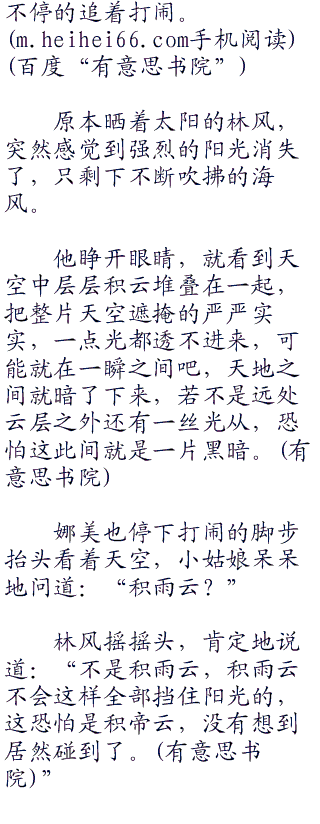 不停的追着打闹。
(m.heihei66.com手机阅读)
(百度“有意思书院”)
原本晒着太阳的林风，
突然感觉到强烈的阳光消失
了，只剩下不断吹拂的海
风。
他睁开眼睛，就看到天
空中层层积云堆叠在一起，
把整片天空遮掩的严严实
实，一点光都透不进来，可
能就在一瞬之间吧，天地之
间就暗了下来，若不是远处
云层之外还有一丝光从，恐
怕这此间就是一片黑暗。(有
意思书院)
娜美也停下打闹的脚步
抬头看着天空，小姑娘呆呆
地问道：“积雨云？”
林风摇摇头，肯定地说
道：“不是积雨云，积雨云
不会这样全部挡住阳光的，
这恐怕是积帝云，没有想到
居然碰到了。(有意思书
院)”